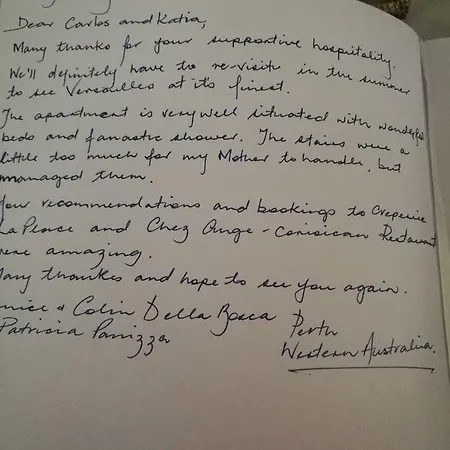 Dear Carlos and Katia,
Many thanks for your supportive hospitality.
We'll definitely have to re-visit in the summer
to see Versailles at it's finest.
The apartment is very well situated with wonderful
beds and fanastic shower. The stairs were a
little too much for my Mother to handle, but
managed them.
Your recommendations and bookings to Creperie
La Place and Chez Ange - Corsican Restaurant
were amazing.
Many thankes and hope to see you again.
& Colin Della Bosca
Patricia Panizza
Perth
Western Australia.